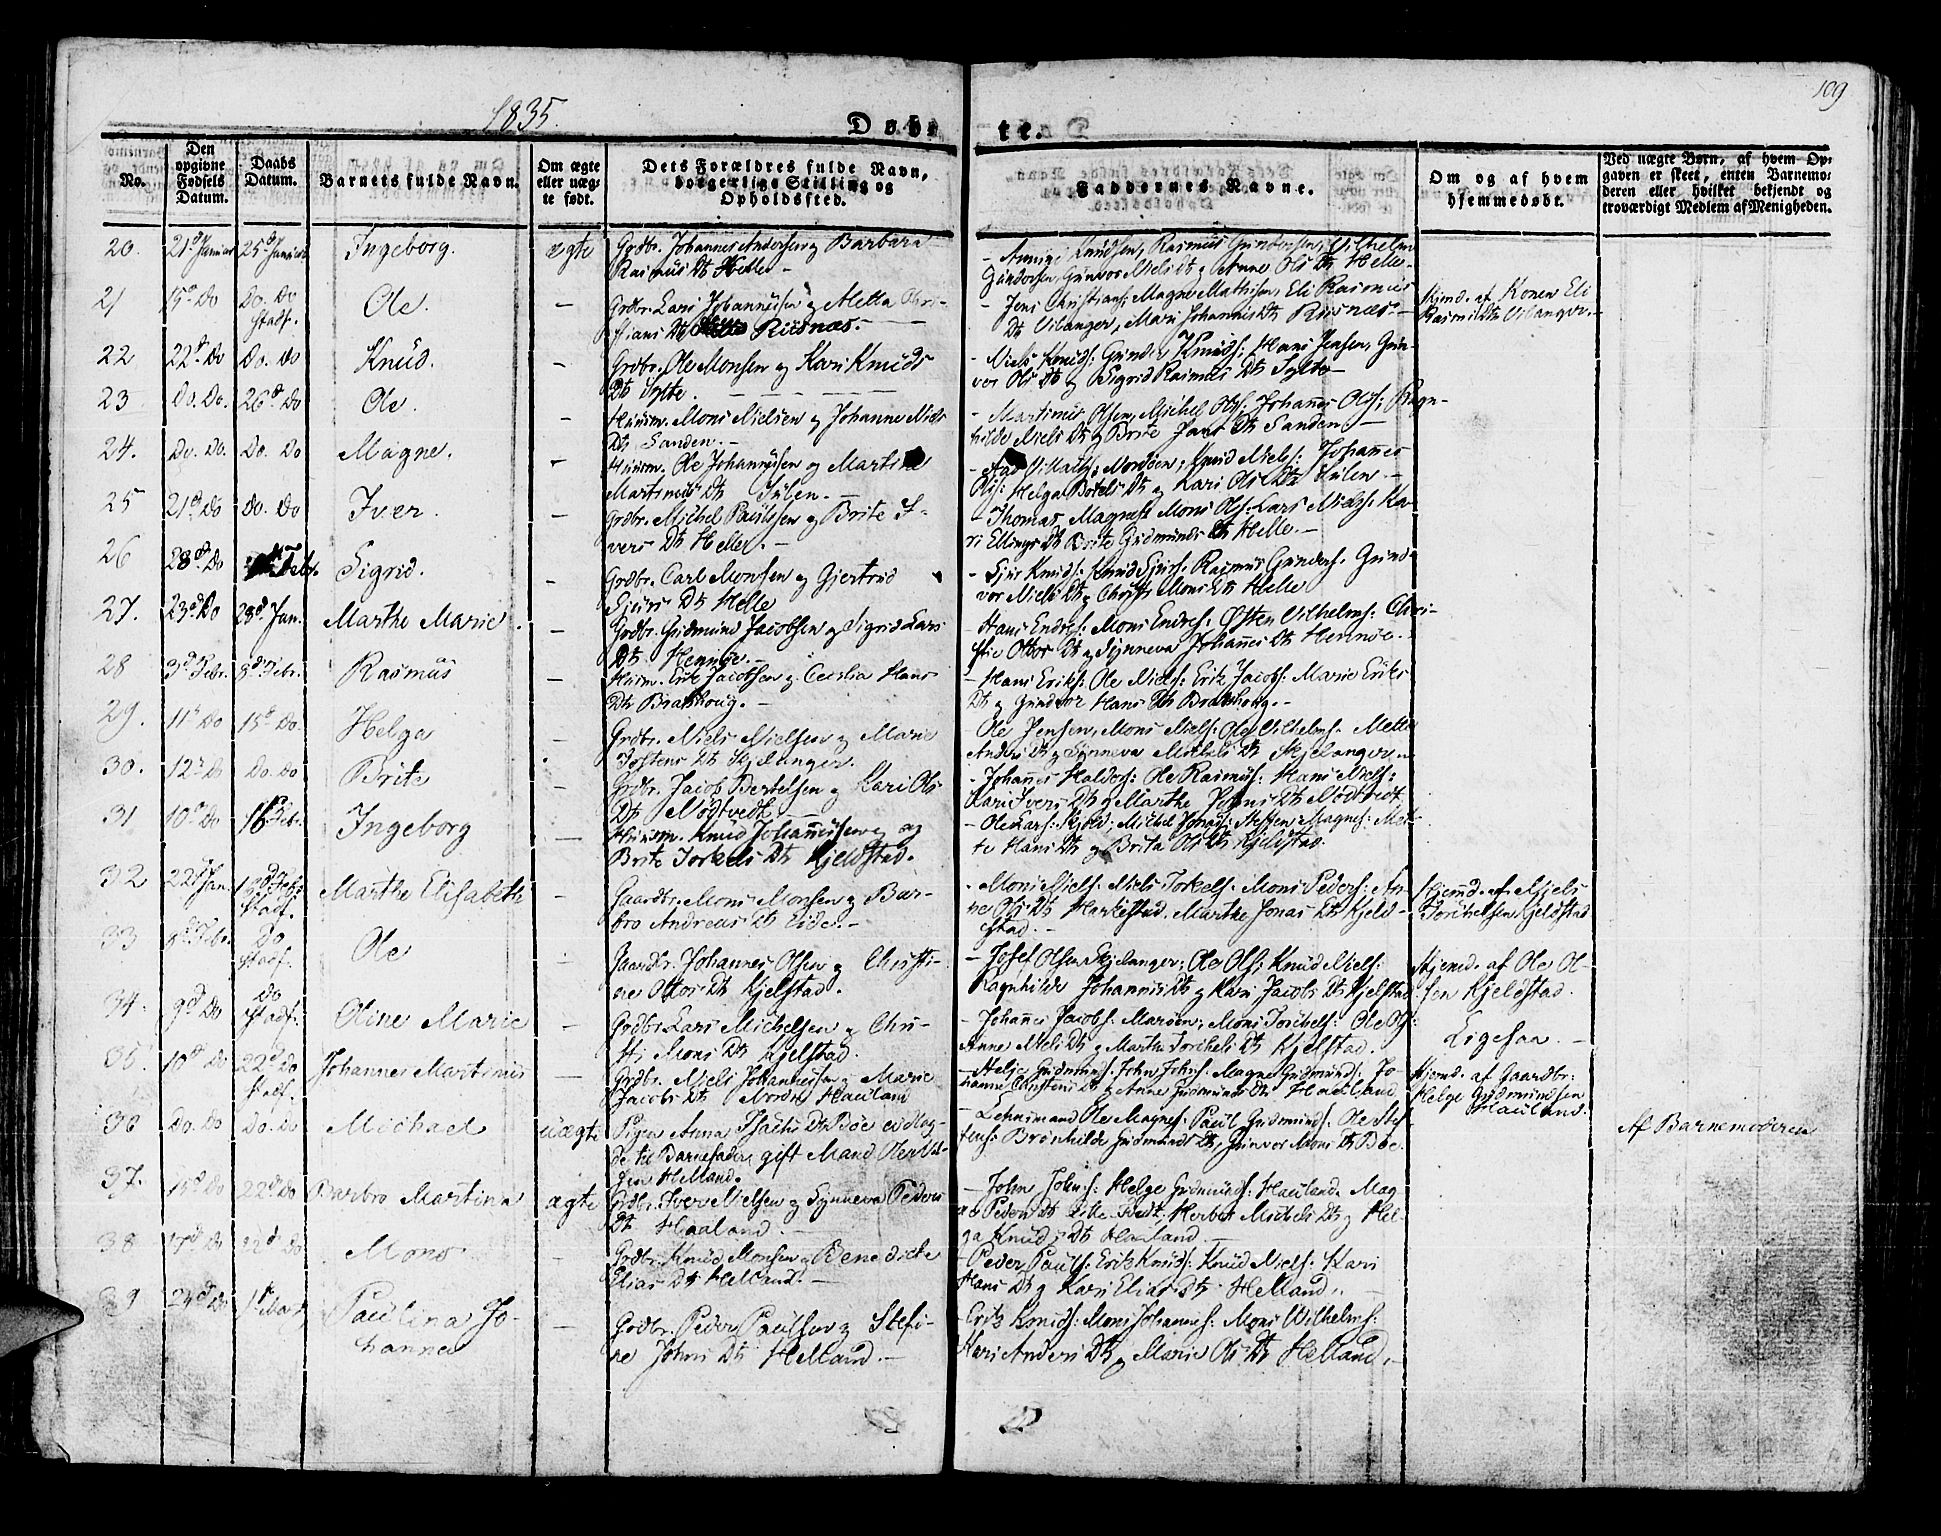 109
1835.
Døbte.
No.
Den opgivne Fødsels Datum.
Daabs Datum.
Barnets fulde Navn.
Om ægte eller uægte født.
Dets Forældres fulde Navn, borgerlige Stilling og Opholdsted.
Faddernes Navne.
Om og af hvem hjemmedøbt.
Ved uægte Børn, af hvem Opgaven er skeet, enten Barnemoderen eller hvilket bekjendt og troværdigt Medlem af Menigheden.
20. 21d Januar 25d Januar Ingeborg. ægte Grdbr. Johannes Andersen og Barbara
Rasmus Dtr Helle -
Knudsen, Rasmus Gundersen, Vilhelm
Gundersen, Gunvor Niels Dtr og Anne Ols Dtr Helle.
21 19d Do Do. Do stadf. Ole. - Grdbr. Lars Johannessen og Metta Chri-
stians Dtr Riisnæs. -
- Jens Christians: Magne Mathisen, Eli Rasmus
Dtr Vilanger, Mari Johannis Dtr Riisnæs -
Hjemd. af Konen Eli
Rasmus Dtr Vilanger. -
22 22d Do Do. Do Knud. - Grdbr. Ole Monsen og Kari Knuds
Dtr Sylte.
- Niels Knuds: Gunder Knuds: Hans Jensen, Gun-
vor Ols Dtr og Sigrid Rasmus Dtr Sylte -
23 Do. Do. 26d Do Ole. - Huusm. Mons Nielsen og Johanne Niels
Dtr Sanden. -
- Martinus Olsen, Michel Ols: Johannes Ols: Ragn-
hilde Niels Dtr og Brite Jans Dtr Sanden -
24. Do. Do. Do. Do Magne. - Huusm. Ole Johannessen og Martine
Martinus Dtr Sulen. -
Knud Niels: Johannes
Ols: Helga Botels Dtr og Kari Ols Dtr Sulen -
25 21d Do Do. Do Iver. - Grdbr. Michel Paulsen og Brite I-
vers Dtr Helle. -
- Thomas Magnes: Mons Ols: Lars Niels: Ka-
ri Ellings Dtr Brite Gudmunds Dtr Helle. -
26 28d Do Febr. Sigrid. - Grdbr. Carl Monsen og Gjertrud
Sjurs Dtr Helle
- Sjur Knuds: Knud Sjurs: Rasmus Gunders: Gun-
vor Niels Dtr og Christi Mons Dtr Helle
27. 23d Do 28d Jan. Marthe Marie. - Grdbr. Gudmund Jacobsen og Sigrid Lars
Dtr Hennøe. -
- Hans Endres: Mons Endres: Østen Vilhelms: Chri-
stie Ottos Dtr og Synneva Johannes Dtr Hennøe. -
28 3d Febr. 8d Febr. Rasmus - Huusm. Erik Jacobsen og Cecilia Hans
Dtr Brathoug. -
- Hans Eriks: Ole Niels: Erik Jacobs: Marie Eriks
Dtr og Gundvor Hans Dtr Brathoug. -
29. 11d Do 15d Do. Helga Grdbr. Niels Nielsen og Marie
Jostens Dtr Skjelanger.
Ole Jensen, Mons Niels: Ole Vilhelms: Mette
Anders Dtr og Synneva Michels Dtr Skjelanger. -
30. 12d Do Do. Do Brite Grdbr. Jacob Bertelsen og Kari Ols
Dtr Nødtvedt -
- Johannes Haldors: Ole Rasmus: Hans Niels:
Kari Ivers Dtr og Marthe Johns Dtr Nødtvedt,
31 10d Do 16 Febr. Ingeborg - Huusm. Knud Johannessen og
Brite Torkels Dtr Kjeldstad.
- Ole Lars: Skjold, Michel Jonas: Steffen Magnes: Met-
te Hans Dtr og Brita Ols Dtr Kjeldstad.
32 22d Jan. Febr. stadf. Marthe Elisabeth - Gaardbr. Mons Monsen og Bar-
bro Andreas Dtr Eide. -
- Mons Niels: Niels Torkels: Mons Peders: An-
ne Ols Dtr Herkestad, Marthe Jonas Dtr Kjeld-
stad. -
Hjemd. af Niels
Torchelsen Kjeldstad
33 Febr. Do stadf. Ole - Gaardbr. Johannes Olsen og Christi-
ne Ottos Dtr Kjelstad.
- Josef Olsen Skjelanger, Ole Ols: Knud Niels:
Ragnhilde Johannis Dtr og Kari Jacobs Dtr Kjelstad
Hjemd. af Ole Ol-
sen Kjeldstad.
34. 9d Do Do stadf. Oline Marie - Grdbr. Lars Michelsen og Chri-
sti Mons Dtr Kjelstad.
- Johannes Jacobs: Marøen, Mons Torchels: Ole Ols:
Anne Niels Dtr og Marthe Torchels Dtr Kjelstad.
Ligesaa. -
35. 10d Do 22d Do stadf. Johannes Martinus - Grdbr. Niels Johannessen og Marie
Jacobs Dtr Nordre Hauland
- Helje Gudmunds: John Johns: Magne Gudmunds: Jo-
hanne Christens Dtr og Anne Gudmunds Dtr Hauland
Hjemd. af Gaardbr:
Helge Gudmundsen
Hauland.
36 Do. Do Do. Do Michael uægte Pigen Anna Isachs Dtr Bøe udlag-
de til Barnefader gift Mand Ole
Helland.
- Lehnsmand Ole Magnes: Paul Gudmunds: Ole Stef-
fens: Brønhilde Gudmunds Dtr, Gunvor Mons Dtr Bøe.
Af Barnemoderen
37. 15d Do 22d Do Barbro Martina ægte Grdbr. Iver Nielsen og Synneva Peders
Dtr Haaland.
- John Johns: Helge Gudmunds: Hauland, Mag-
Peders Dtr Herborg Michels Dtr og Hel-
ga Knuds Dtr Haaland. -
38 17d Do 22d Do Mons - Grdbr. Knud Monsen og Benedicte
Elias Dtr Helland. -
- Peder Pauls: Erik Knuds: Knud Niels: Kari
Hans Dtr og Kari Elias Dtr Helland. -
39 24d Do 1ste Marts Paulina Jo-
hanna - Grdbr. Peder Paulsen og Stefi-
ne Johns Dtr Helland. -
- Erik Knuds: Mons Johannes: Mons Wilhelms:
Kari Anders Dtr og Marie Ols Dtr Helland. -